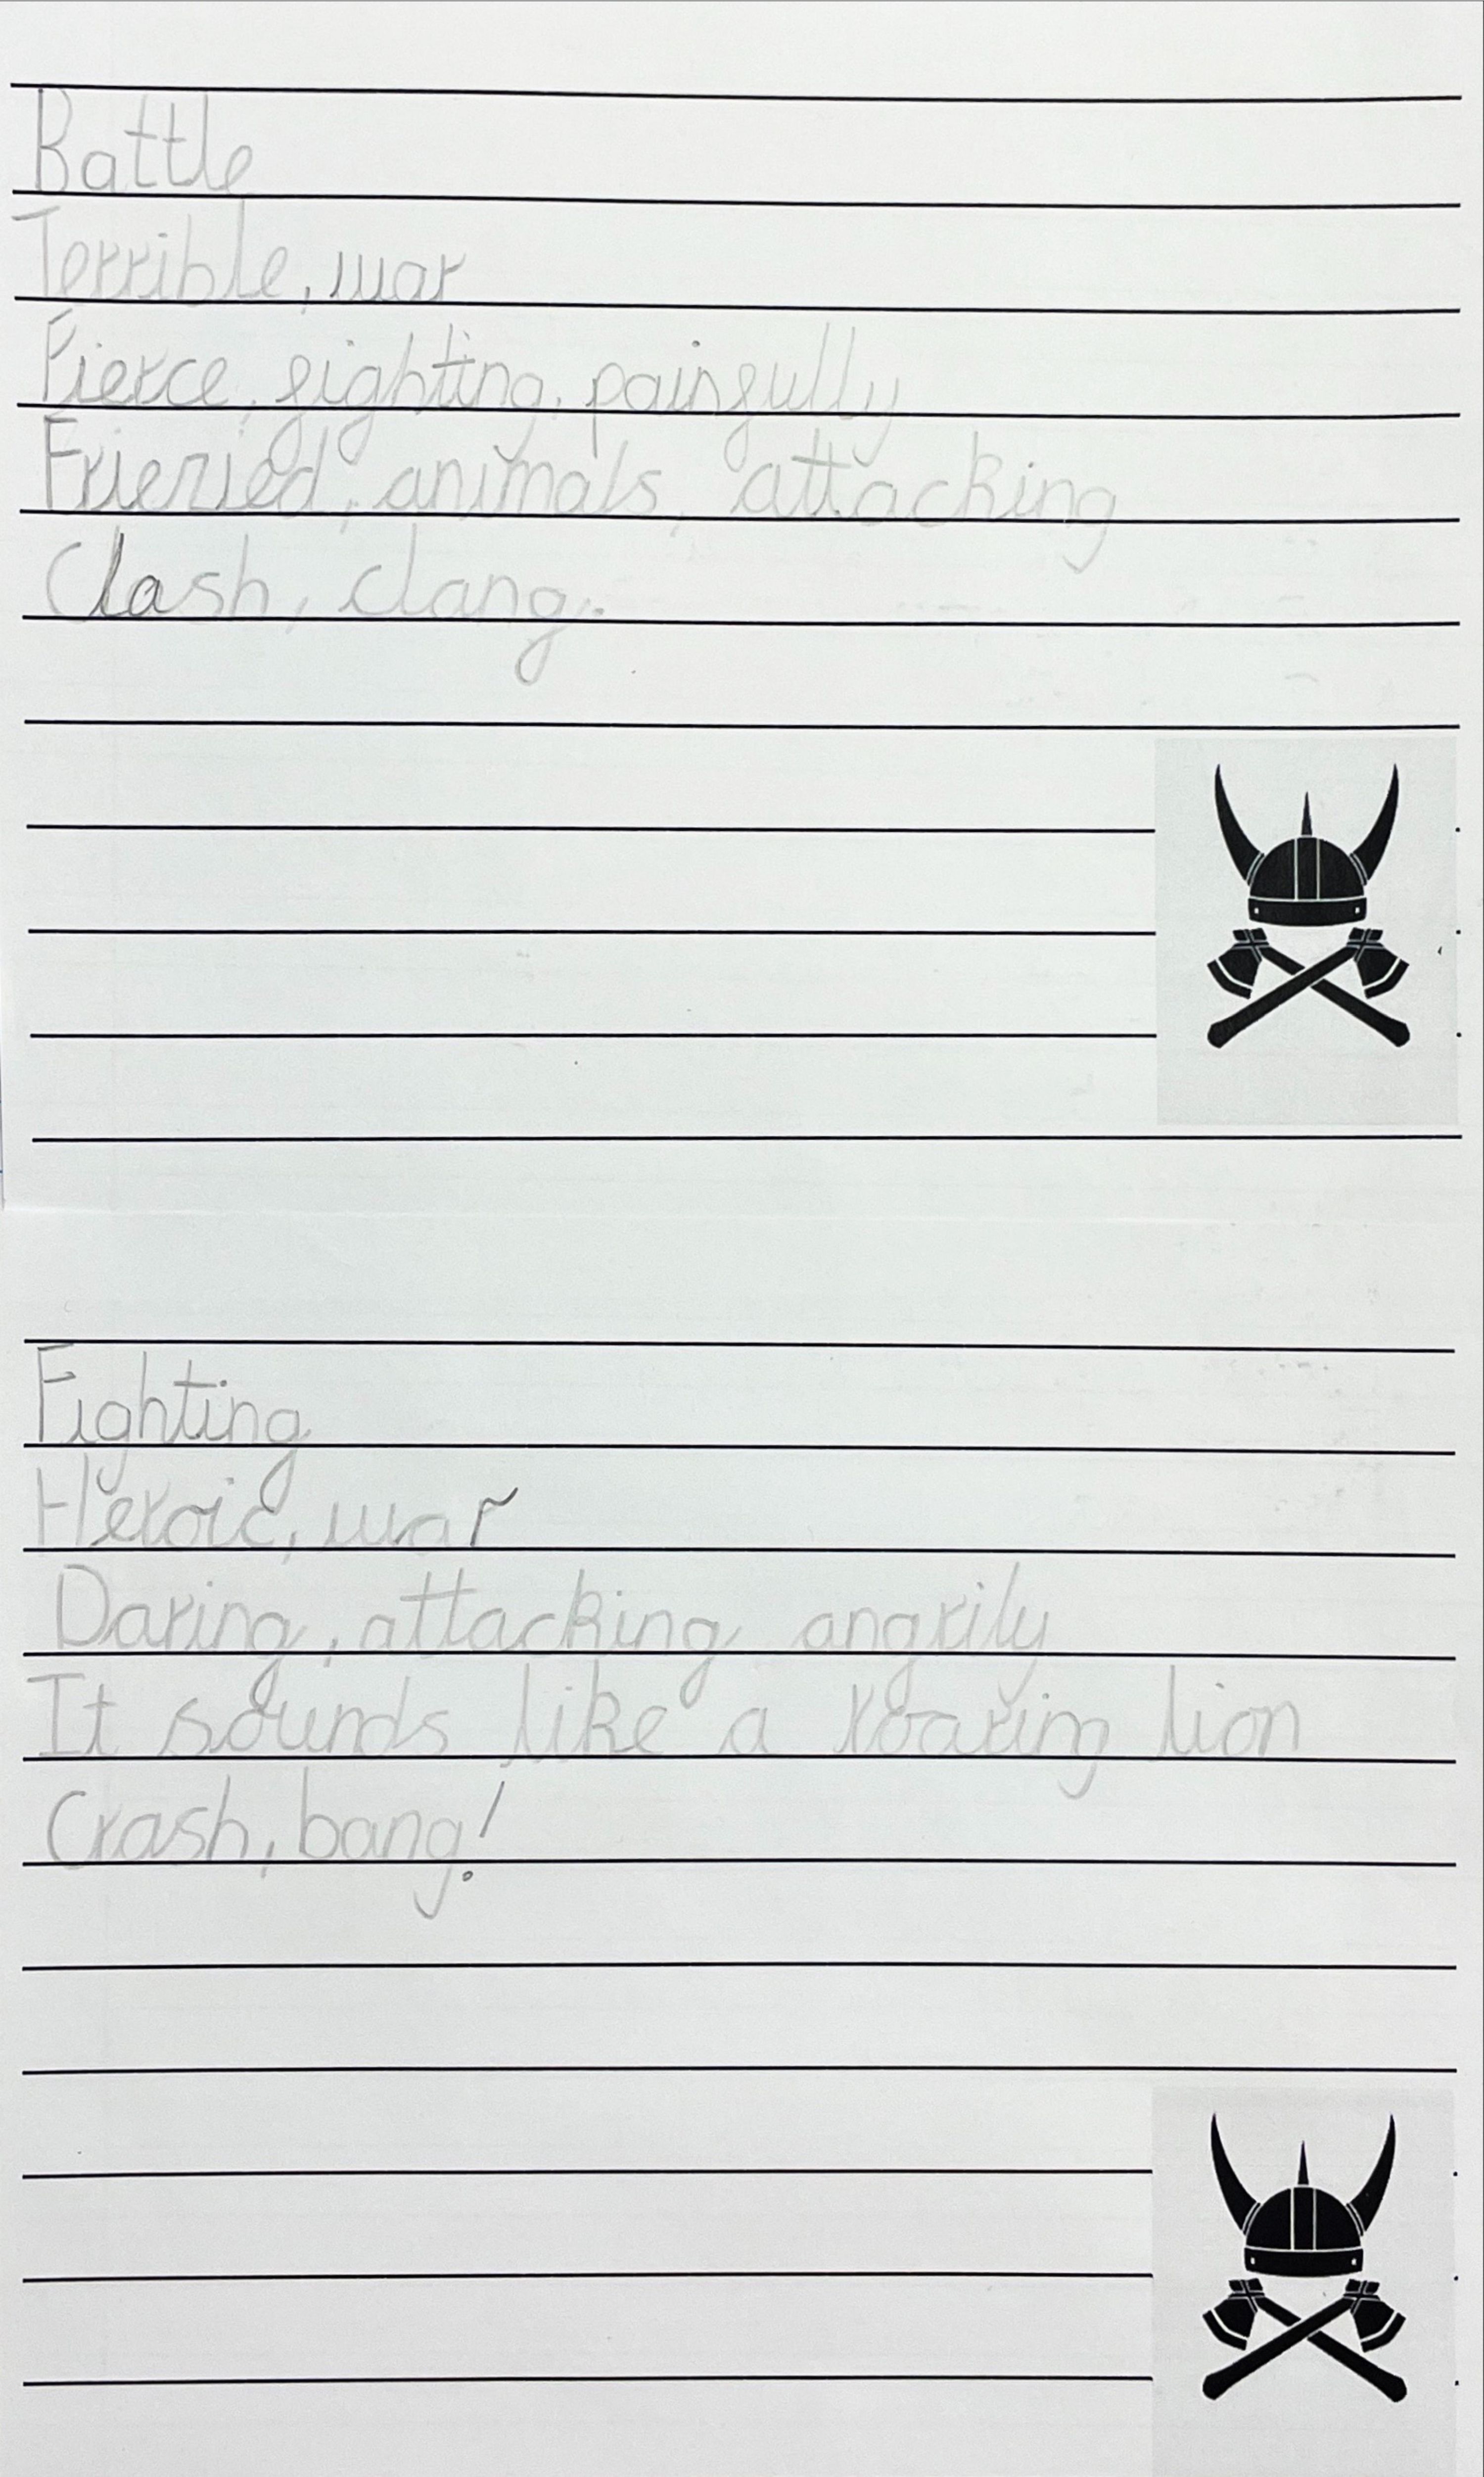 Battle
Terrible, war
Fierce, fighting, painfully
animals, attacking
Clash, clang.
Fighting
Heroic, war
Daring, attacking angrily
It sounds like a roaring lion
Crash, bang!